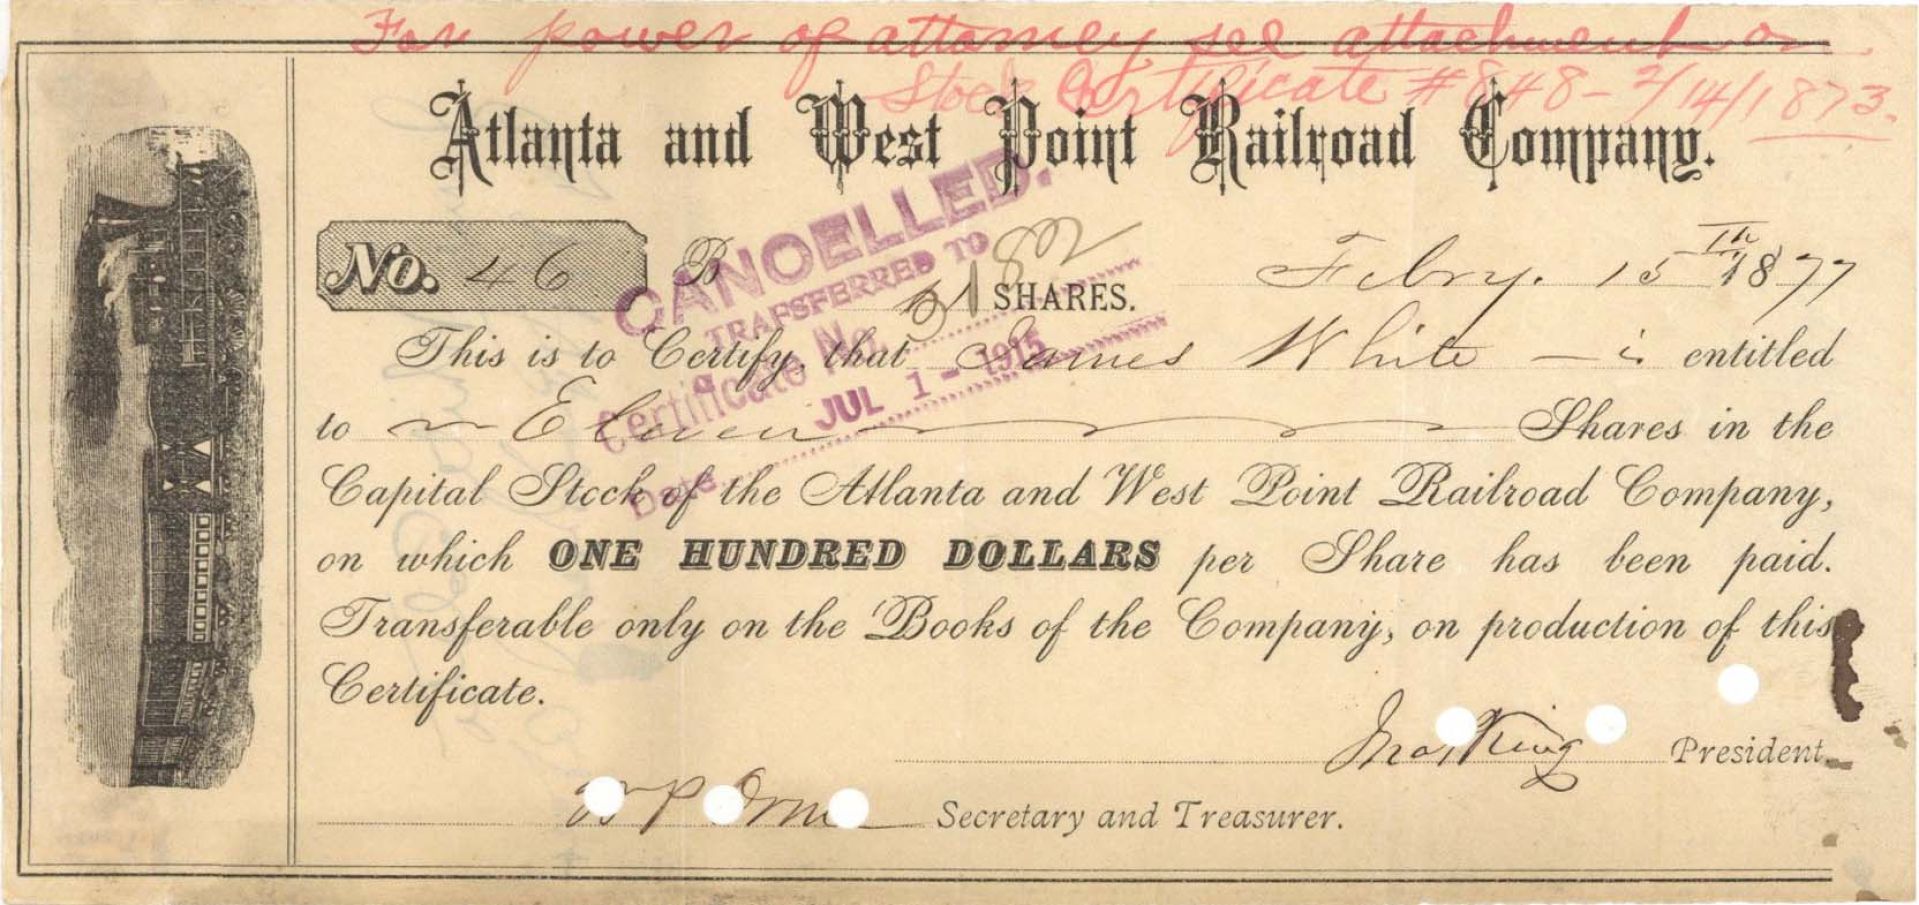 For power of attorney see attachment on
Stock Certificate #848 - 2/14/1873.
Atlanta and West Point Railroad Company.
No. 46 B
SHARES.
Febry. 15th 1877
CANCELLED.
TRANSFERRED TO
Certificate No.
Date JUL 1 - 1915
This is to Certify, that James White — is entitled
to Eleven Shares in the
Capital Stock of the Atlanta and West Point Railroad Company,
on which ONE HUNDRED DOLLARS per Share has been paid.
Transferable only on the Books of the Company, on production of this
Certificate.
Jno. P. King President.
Secretary and Treasurer.